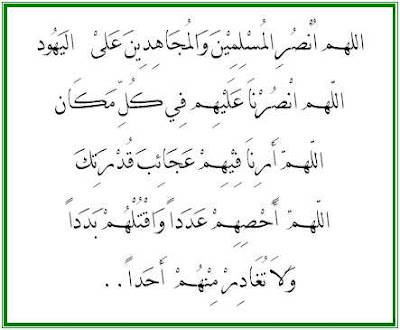 اللهم انْصُرِ المُسْلِمِيْنَ وَالمُجَاهِدِينَ عَلىْ اليَهُود
اللّهم انْصُرْنَا عَلَيْهِم فِي كُلِّ مَكَان
اللّهمّ أَرِنَا فِيْهِمْ عَجَائِبَ قُدْرَتِكَ
اللّهمّ أَحْصِهِمْ عَدَداً وَاقْتُلْهُمْ بَدَداً
وَلَا تُغَادِرْ مِنْهُمْ أَحَداً . .